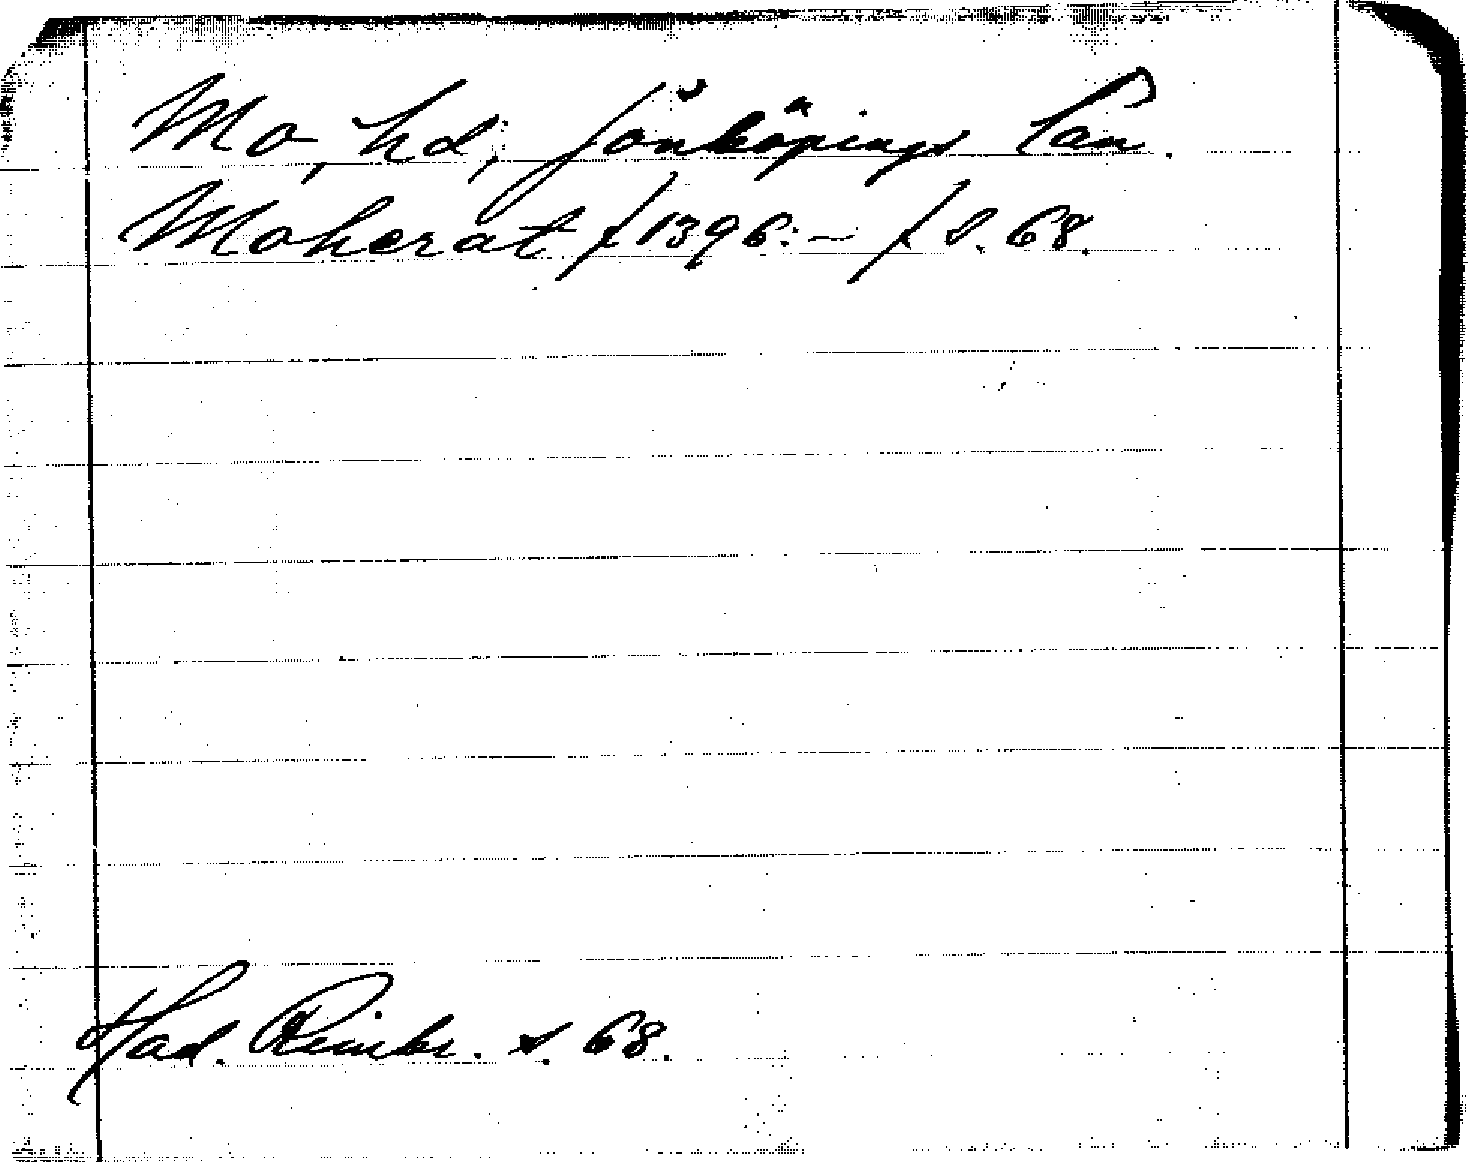 Mo, hd, Jönköpings län.
Moherat /1396:-/ s. 68.
Had. Reimbr. s. 68.